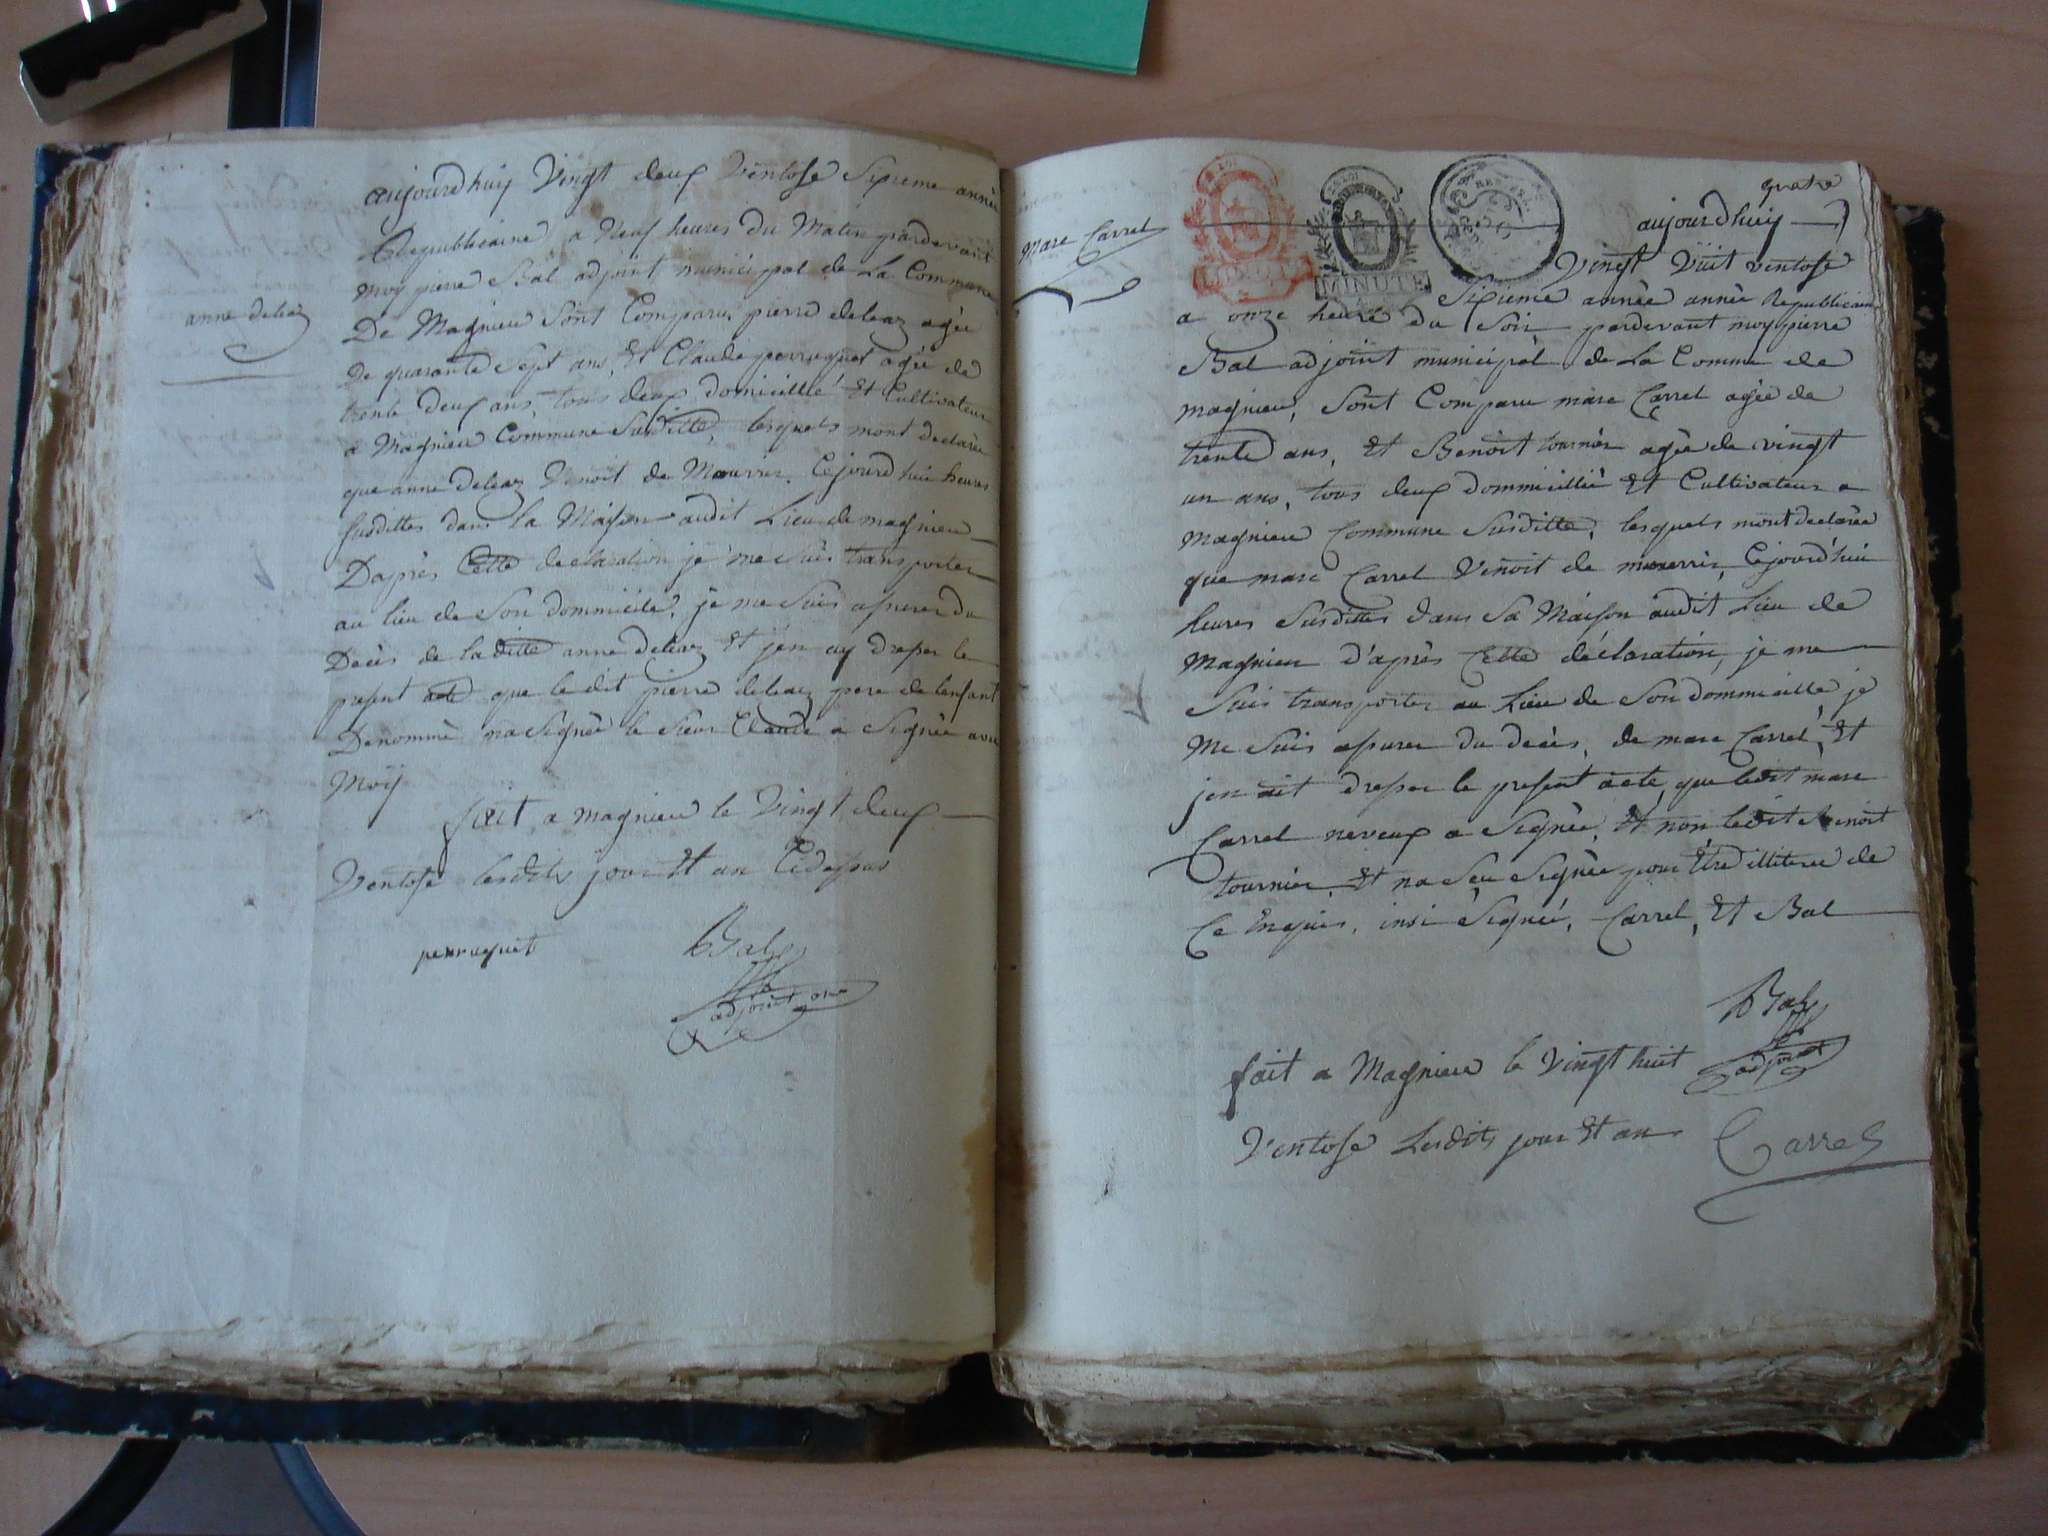 anne deleaz
aujourdhuy Vingt deux Ventose Sixieme année
Republicaine a Neuf heures du Matin pardevant
moy pierre Bal adjoint municipal de La Commune
De Magnieu Sont Comparu pierre deleaz agée
De quarante Sept ans, Et Claude perruquet agée de
trente deux ans, tous deux domicillié Et Cultivateur
a Magnieu Commune Susditte, lesquels mont declarée
que anne deleaz Venoit de Mourrir. Cejourdhui heures
susdittes dans la Maison audit Lieu de magnieu
D'après Cette declaration je me suis transporter
au lieu de Son dommicile, je me suis assurer du
Decès de la ditte anne deleaz Et jen ay dresser le
present acte que le dit pierre deleaz pere de lenfant
Denommé na Signée le Sieur Claude a Signée avec
Moy
fait a magnieu le Vingt deux
Ventose lesdits jour Et an Cidessus
perruquet Bal
adjoint
marc Carrel
MINUTE
REP. FRA.
quatre
aujourdhuy
Vingt Vuit ventose
Sixieme année année Republicaine
a onze heure du Soir pardevant moy pierre
Bal adjoint municipal de La Commune de
magnieu, Sont Comparu marc Carrel agée de
trente ans, Et Benoit tournier agée de vingt
un ans, tous deux dommicillié Et Cultivateur a
magnieu Commune Susditte, lesquels mont declarée
que marc Carrel Venoit de mourrir, Cejourd'hui
heures Susdittes dans Sa Maison audit Lieu de
Magnieu d'après Cette déclaration, je me
Suis transporter au Lieu de Son dommicille, je
Me Suis assurer du decès, de marc Carrel, Et
jen ait dresser le present acte, que ledit marc
Carrel neveux a Signée, Et non ledit Benoit
tournier, Et na Seu Signée pour être illiteree de
Ce Enquis, insi Signée, Carrel, Et Bal
Bal
adjoint
fait a Magnieu le Vingt huit
Ventose Lesdits jour Et an
Carrel